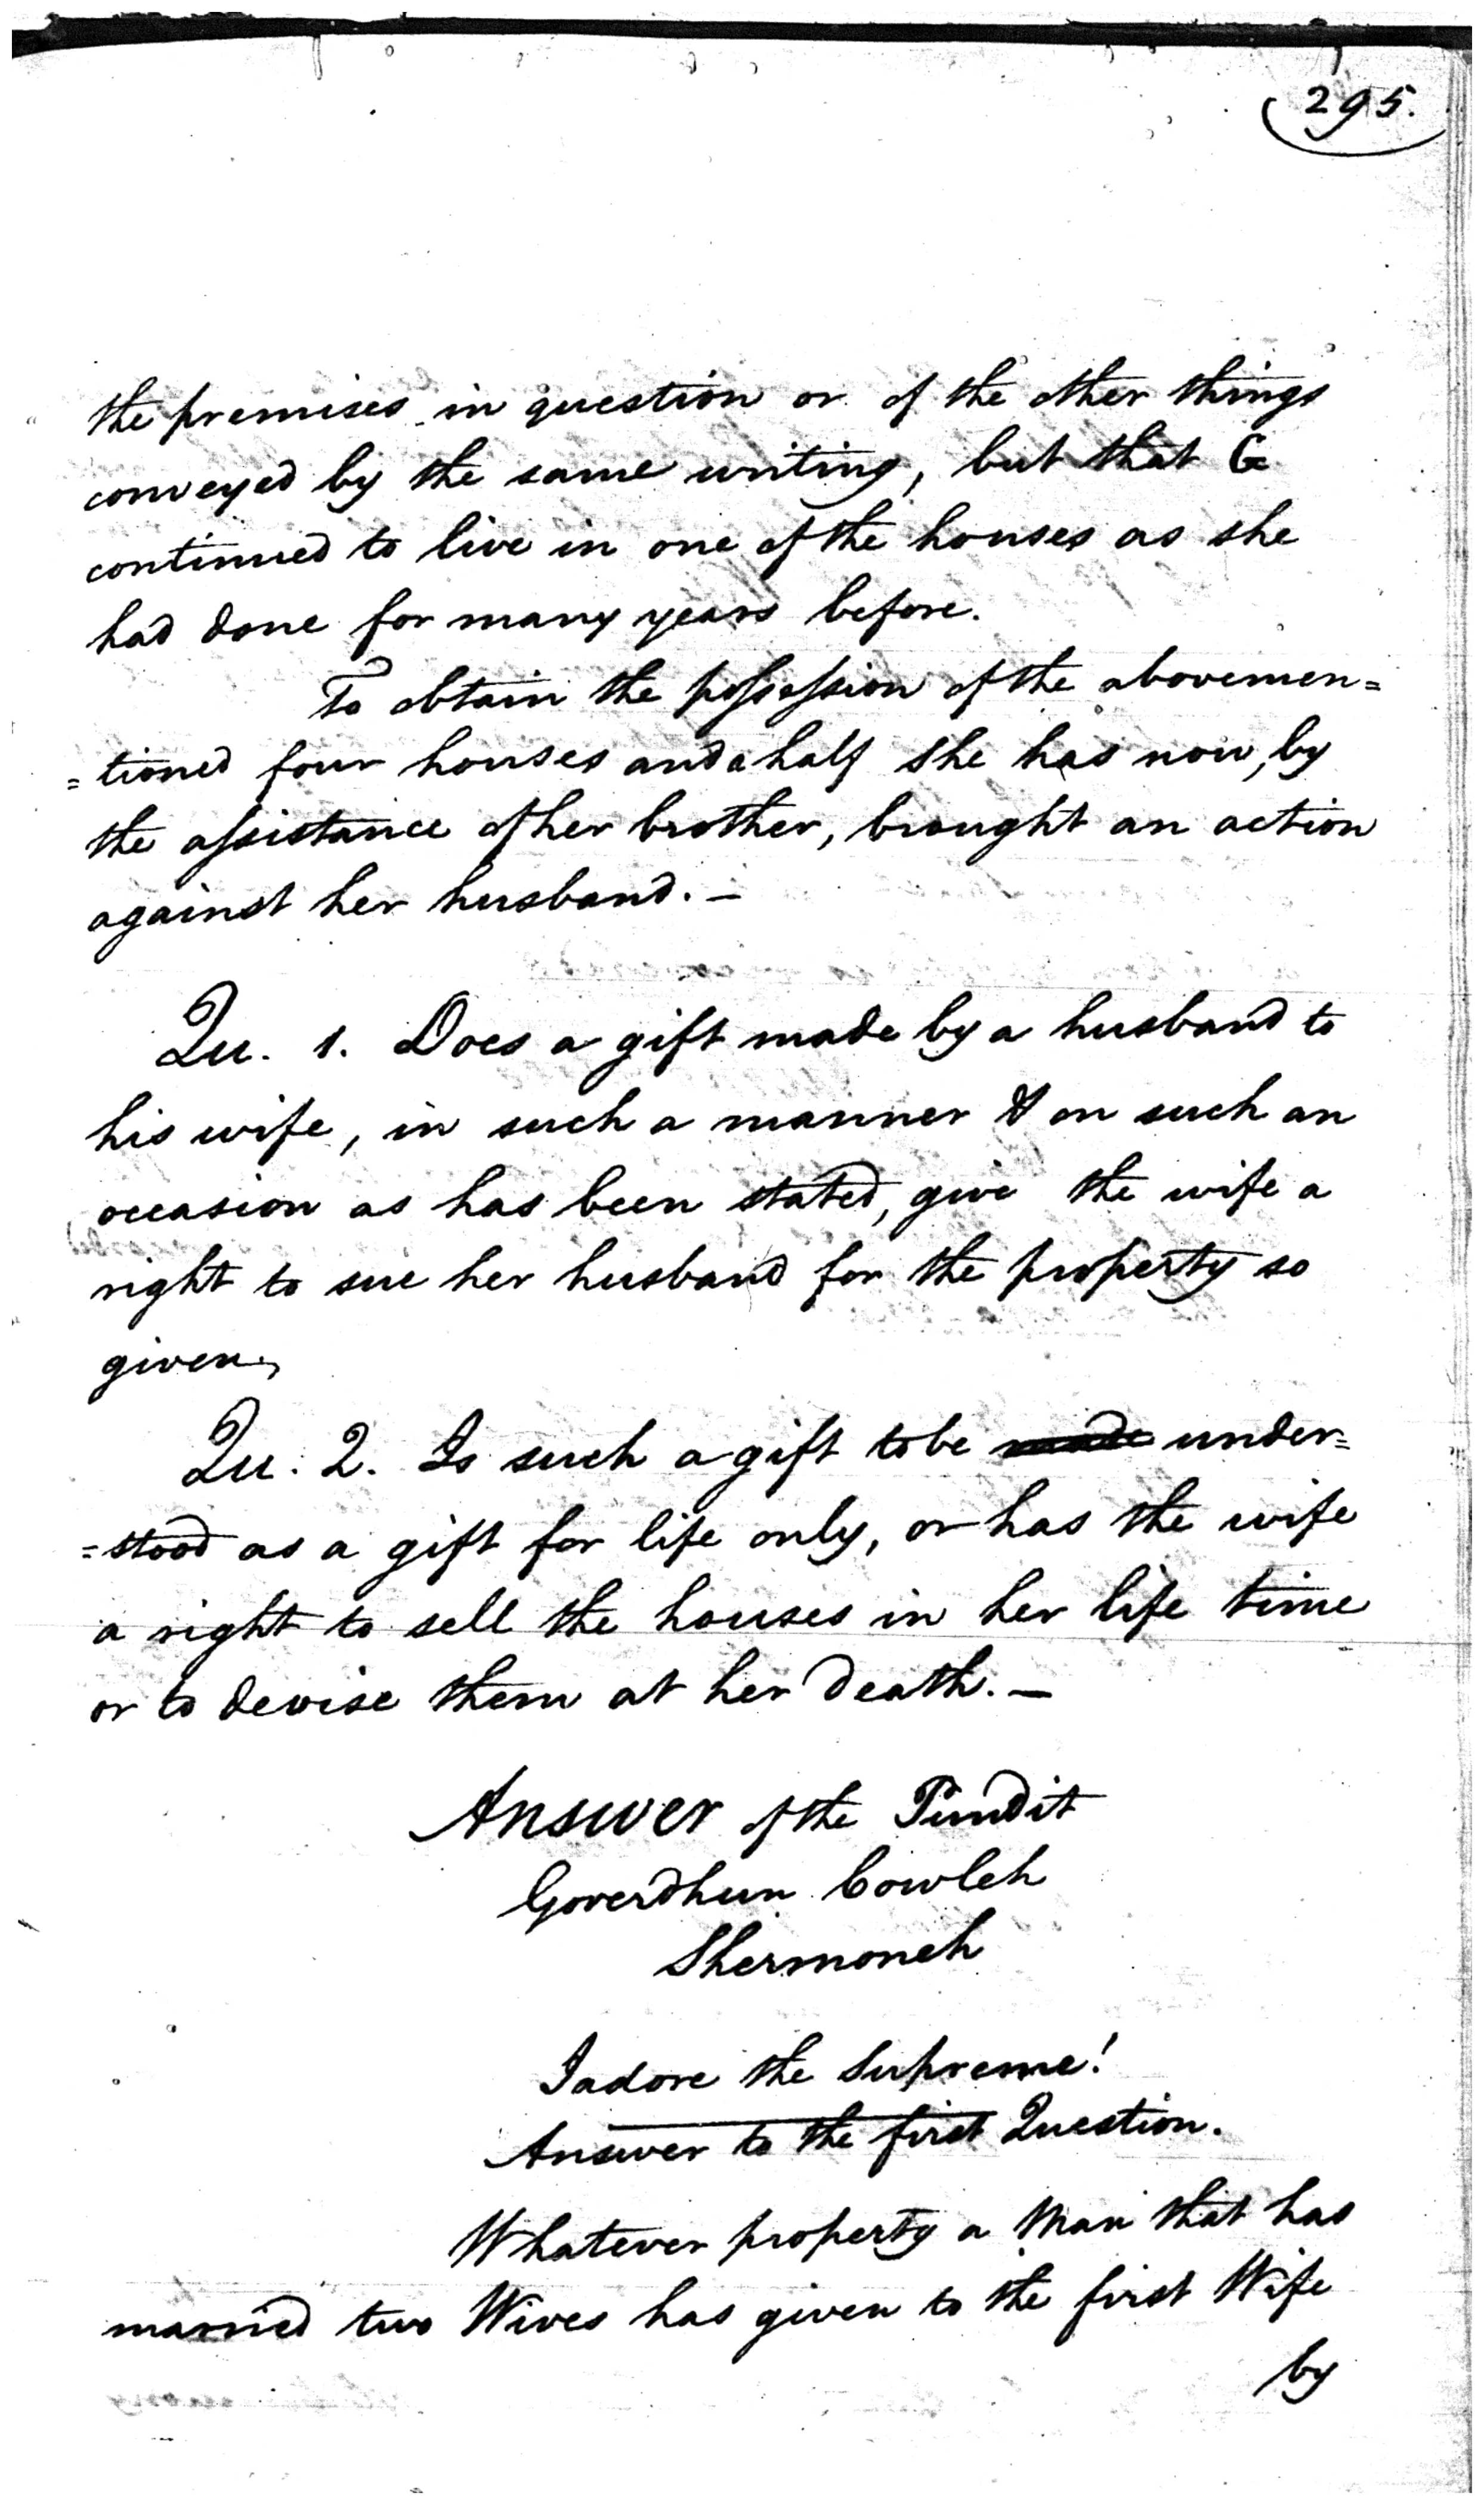 295.
the premises in question or of the other things
conveyed by the same writing, but that G
continued to live in one of the houses as she
had done for many years before.
To obtain the possession of the abovemen=
=tioned four houses and a half she has now, by
the assistance of her brother, brought an action
against her husband. —
Qu. 1. Does a gift made by a husband to
his wife, in such a manner & on such an
occasion as has been stated, give the wife a
right to sue her husband for the property so
given,
Qu. 2. Is such a gift to be made under=
=stood as a gift for life only, or has the wife
a right to sell the houses in her life time
or to devise them at her death. —
Answer of the Pundit
Goverdhun Cowleh
Shermoneh
I adore the Supreme!
Answer to the first Question.
Whatever property a Man that has
married two Wives has given to the first Wife
by